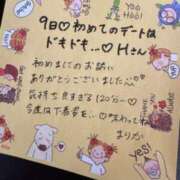 9日♡初めてのデートは
ドモドモ...♡Hさん
初めましてのお誘い
ありがとうございました
気持ち良すぎる120分ー♡
今度は下着姿も...味わってね
まりか
yes!